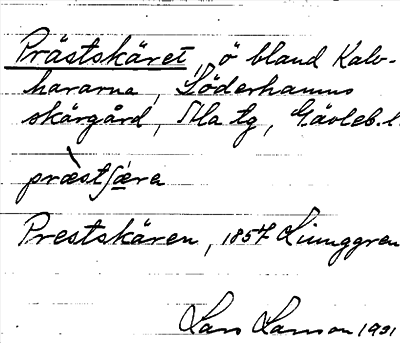 Prästskäret, ö bland Kalv-
hararna, Söderhamns
skärgård, Ala tg, Gävleb. l.
præstʃæra
Prestskären, 1857 Ljunggren
Lars Larsson 1931